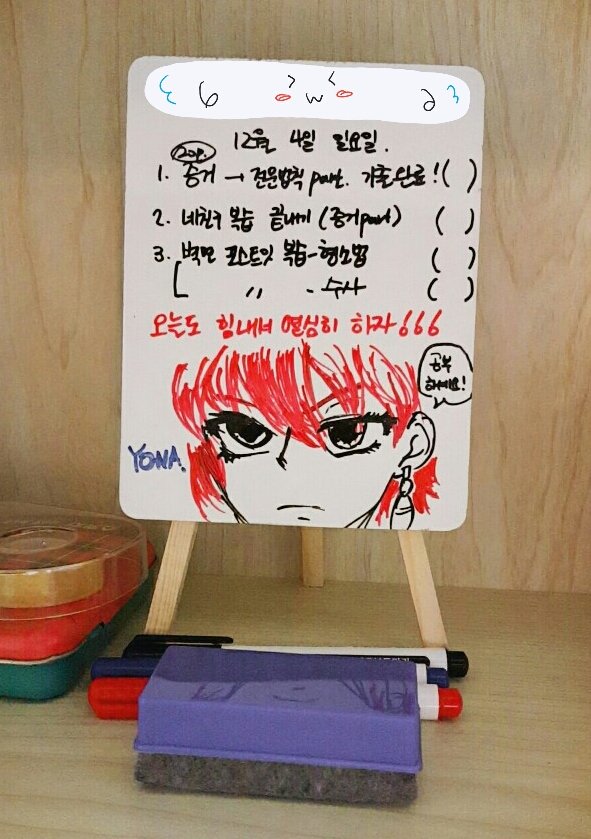 12월 4일 일요일.
1. 증거 → 전문법칙 part. 기출완료! ( )
2. 복습 끝내기 (증거part) ( )
3. 벽면 포스트잇 복습 - 형소법 ( )
〃 - 수사 ( )
오늘도 힘내서 열심히 하자!!!
공부
하세요!
YONA.